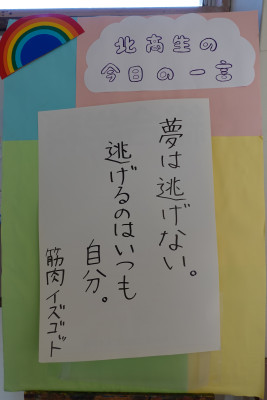 北高生の
今日の一言
夢は逃げない。
逃げるのはいつも
自分。
筋肉イズゴット